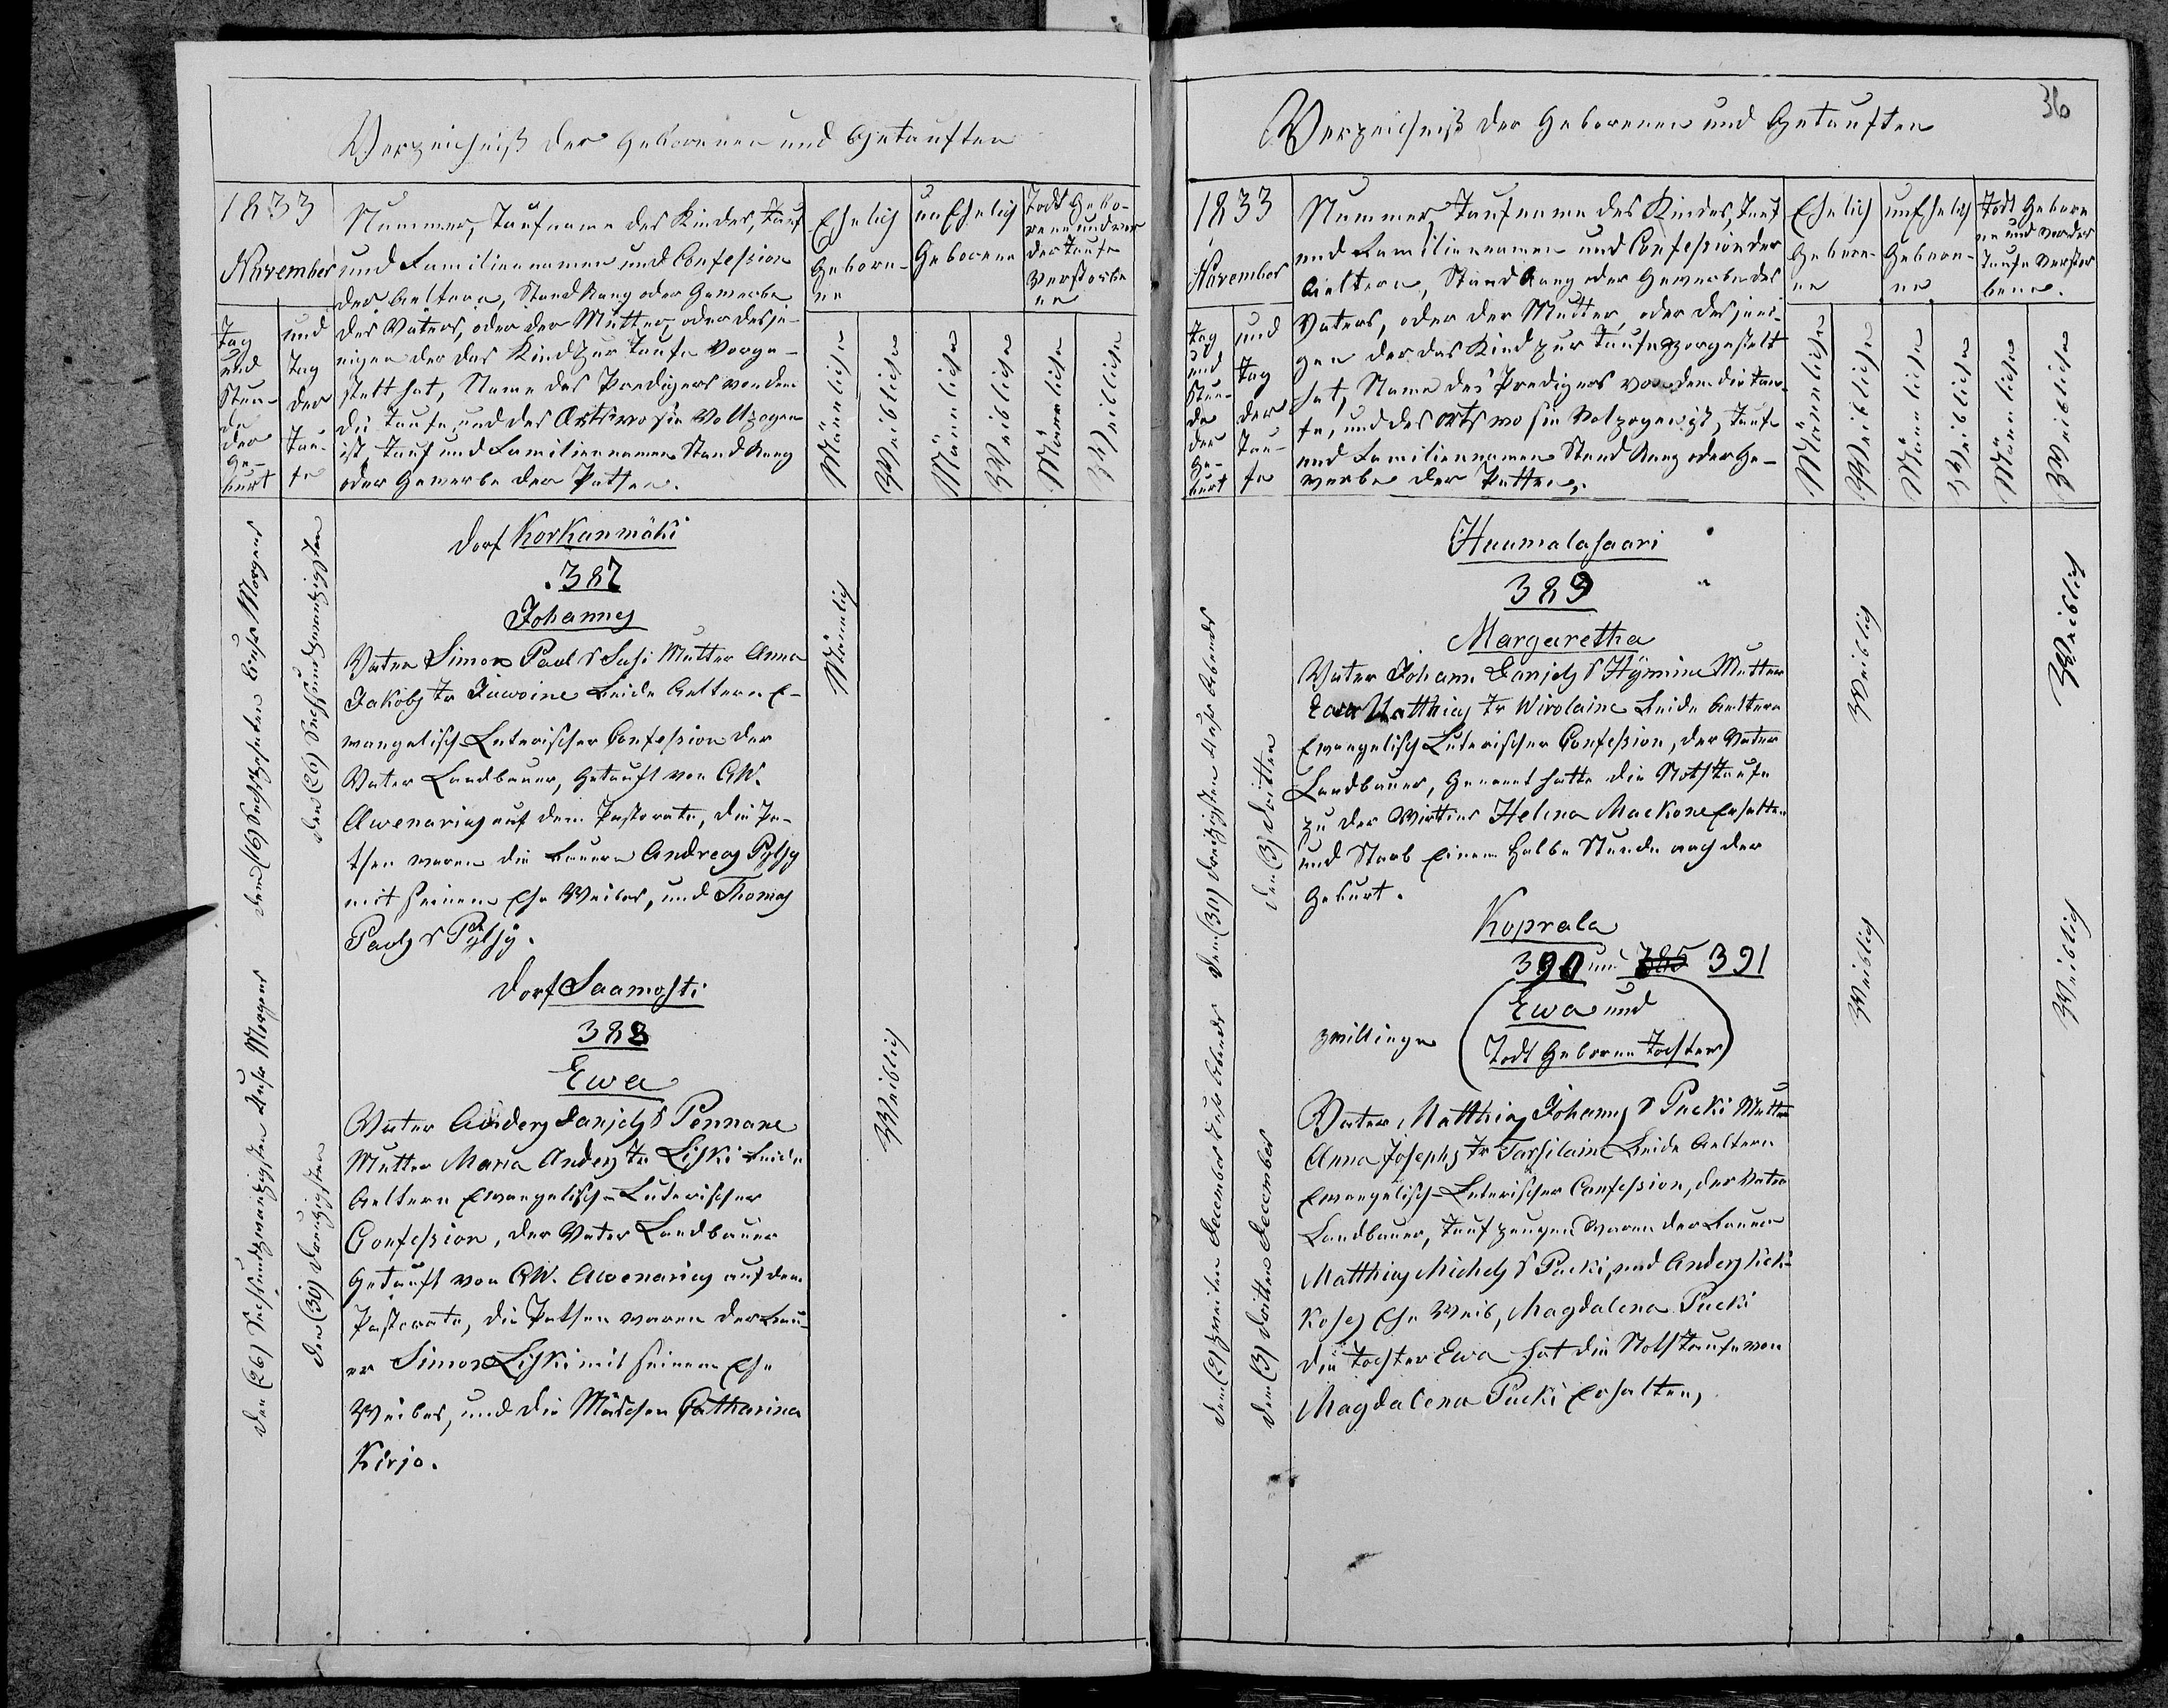 Verzeichniß der Geborenen und Getauften
1833
November
Nummer, Taufname des Kindes, Tauf
und Familiennamen und Confession
der Aeltern, Stand Rang oder Gewerbe
des Vaters, oder der Mutter, oder desje-
nigen der das Kind zur Taufe Vorge-
stelt hat, Name des Predigers von dem
die Taufe, und des Orts wo sie Vollzogen
ist, Tauf und Familiennamen Stand Rang
oder Gewerbe der Pathen.
Ehelich
Gebore-
ne
unEhelich
Geborene
Todt Gebo-
rene und vor
der Taufe
Verstorbe
ne
Tag
und
Stun-
de
der
Ge-
burt
und
Tag
der
Tau-
fe
Männliche
Weibliche
Männliche
Weibliche
Männliche
Weibliche
den (16) Sechszehnten Uhr Morgens
den (26) Sechsundzwanzigsten
Dorf Korkanmäki
387
Johannes
Vater Simon Paul S Susi Mutter Anna
Jakobs Tr Juwoine beide Aeltern E-
wangelisch-Luterischer Confession der
Vater Landbauer, Getauft von GW.
Awenarius auf dem Pastorate, die Pa-
then waren die Bauern Andreas Pÿlsÿ
mit seinem Ehe Weibes, und Thomas
Pauls S Pÿlsÿ.
Männlich
den (26) Sechsundzwanzigsten Uhr Morgens
den (30) Dreizigsten
Dorf Saamosti
388
Ewa
Vater Anders Danjels S Pennane
Mutter Maria Anders Tr Liski beide
Aeltern Ewangelisch-Luterischer
Confession, der Vater Landbauer
Getauft von GW. Awenarius auf dem
Pastorate, die Pathen waren der Bau-
er Simon Liski mit seinem Ehe
Weibes, und die Mädchen Catharina
Kirjo.
Weiblich
36
Verzeichniß der Geborenen und Getauften
1833
November
Nummer, Taufname des Kindes, Tauf
und Familiennamen und Confession der
Aeltern, Stand Rang oder Gewerbe des
Vaters, oder der Mutter, oder desjeni-
gen der das Kind zur Taufe Vorgestelt
hat, Name des Predigers von dem die Tau-
fe, und des Orts wo sie Volzogen ist, Tauf
und Familiennamen Stand Rang oder Ge-
werbe der Pathen.
Ehelich
Gebore-
ne
unEhelich
Gebore-
ne
Todt Gebore
ne und vor der
Taufe verstor
bene.
Tag
und
Stun-
de
der
Ge-
burt
und
Tag
der
Tau-
fe
Männliche
Weibliche
Männliche
Weibliche
Männliche
Weibliche
den (30) dreizigsten Uhr Abends
den (3) dritten
Huumalasaari
389
Margaretha
Vater Johann Danjels S Hÿmine Mutter
Ewa Matthias Tr Wirolaine beide Aeltern
Ewangelisch Luterischer Confession, der Vater
Landbauer, Genannt hatte die Nothtaufe
zu der Wirtins Helena Mackone Erhalten
und Starb Einem Halbe Stunde nach der
Geburt.
Weiblich
Weiblich
den (2) zweiten December Uhr Abends
den (3) dritten December
Koprala
390 und 385 391
Zwillinge
Ewa und
Todt Geborne Tochter
Vater, Matthias Johanns S Pucki Mutter
Anna Josephs Tr Tarsilaine beide Aeltern
Ewangelisch-Luterischer Confession, der Vater
Landbauer, Taufzeugen Waren der Bauer
Matthias Michels S Pucki, und Anders Kick-
koses Ehe Weib, Magdalena Pucki
die Tochter Ewa hat die Nothtaufe von
Magdalena Pucki Erhalten,
Weiblich
Weiblich